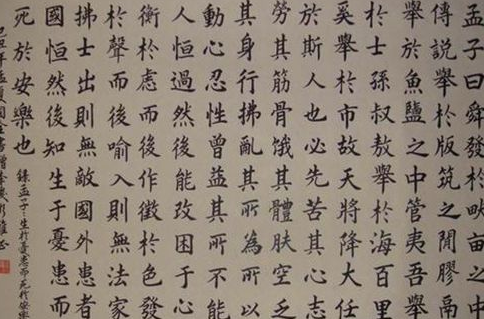 孟子曰舜發於畎亩之中
傳說舉於版築之閒膠鬲
舉於魚鹽之中管夷吾舉
於士孫叔敖舉於海百里
奚舉於市故天將降大任
於斯人也必先苦其心志
勞其筋骨餓其體膚空乏
其身行拂亂其所為所以
動心忍性曾益其所不能
人恒過然後能改困于心
衡於慮而後作徵於色發
於聲而後喻入則無法家
拂士出則無敵國外患者
國恒然後知生于憂患而
死於安樂也 錄孟子生於憂患而死於安樂
己丑年孟夏